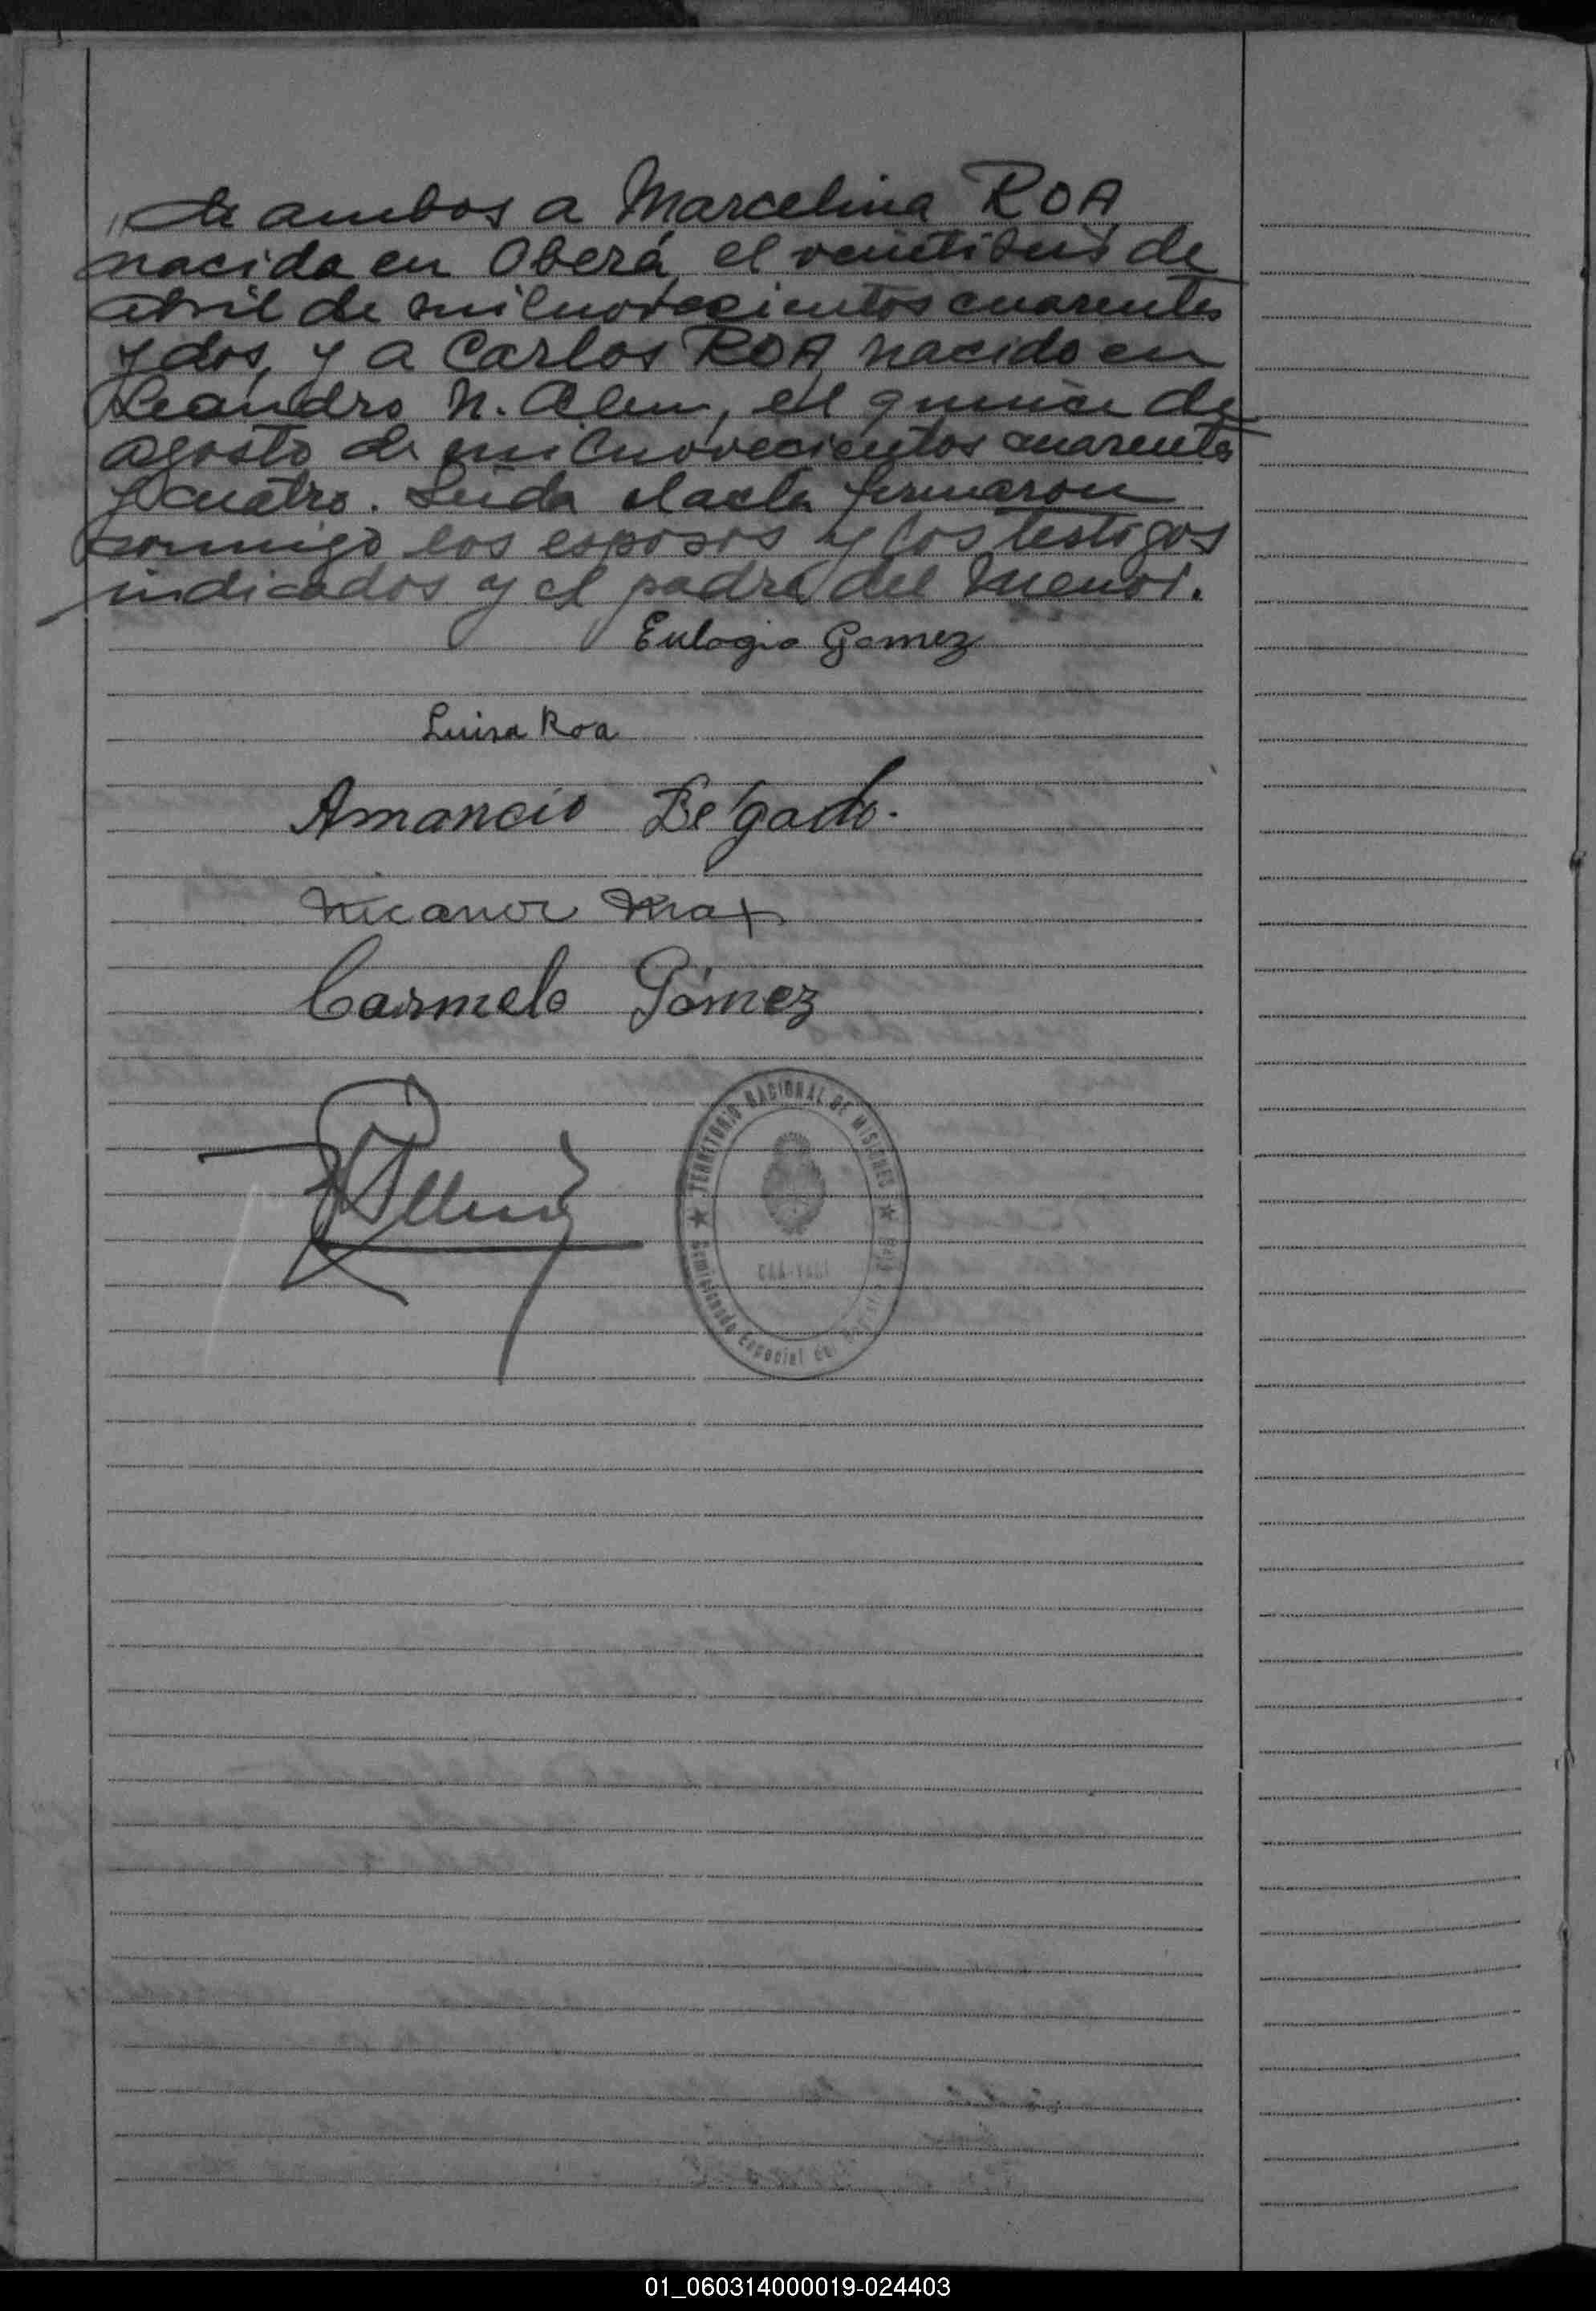 de ambos a Marcelina ROA
nacida en Oberá, el veintiseis de
abril de milnovecientos cuarenta
y dos, y a Carlos ROA nacido en
Leandro N. Alem, el quince de
agosto de milnovecientos cuarenta
y cuatro. Leida el acta firmaron
conmigo los esposos y los testigos
indicados y el padre del menor.
Eulogio Gomez
Luisa Roa
Amancio Delgado.
Nicanor
Carmelo Gómez
TERRITORIO NACIONAL DE MISIONES
CAA-YARI
Comisionado Especial del
01_060314000019-024403